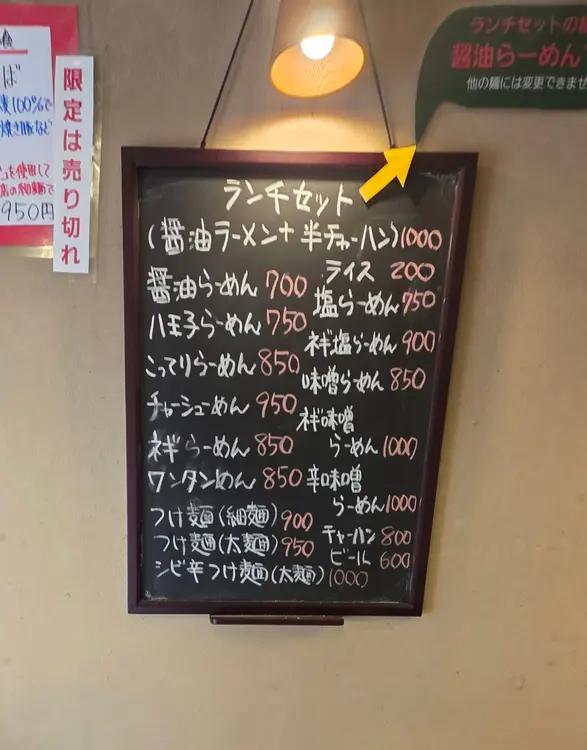 ば
100%で
焼き豚など
を使用して
店の細麺で
950円
限定は売り切れ
ランチセットの
醤油らーめん
他の麺には変更できませ
ランチセット
(醤油ラーメン+半チャーハン)1000
ライス 200
醤油らーめん 700
八王子らーめん 750
こってりらーめん 850
チャーシューめん 950
ネギらーめん 850
ワンタンめん 850
つけ麺(細麺) 900
つけ麺(太麺) 950
シビ辛つけ麺(太麺) 1000
塩らーめん 750
ネギ塩らーめん 900
味噌らーめん 850
ネギ味噌
らーめん 1000
辛味噌
らーめん 1000
チャーハン 800
ビール 600